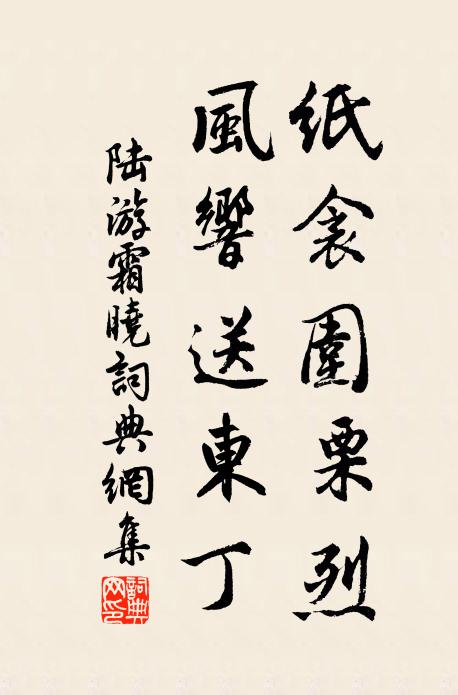 紙衾圍栗烈
風響送東丁
陸游霜曉詞典網集
詞典
网印